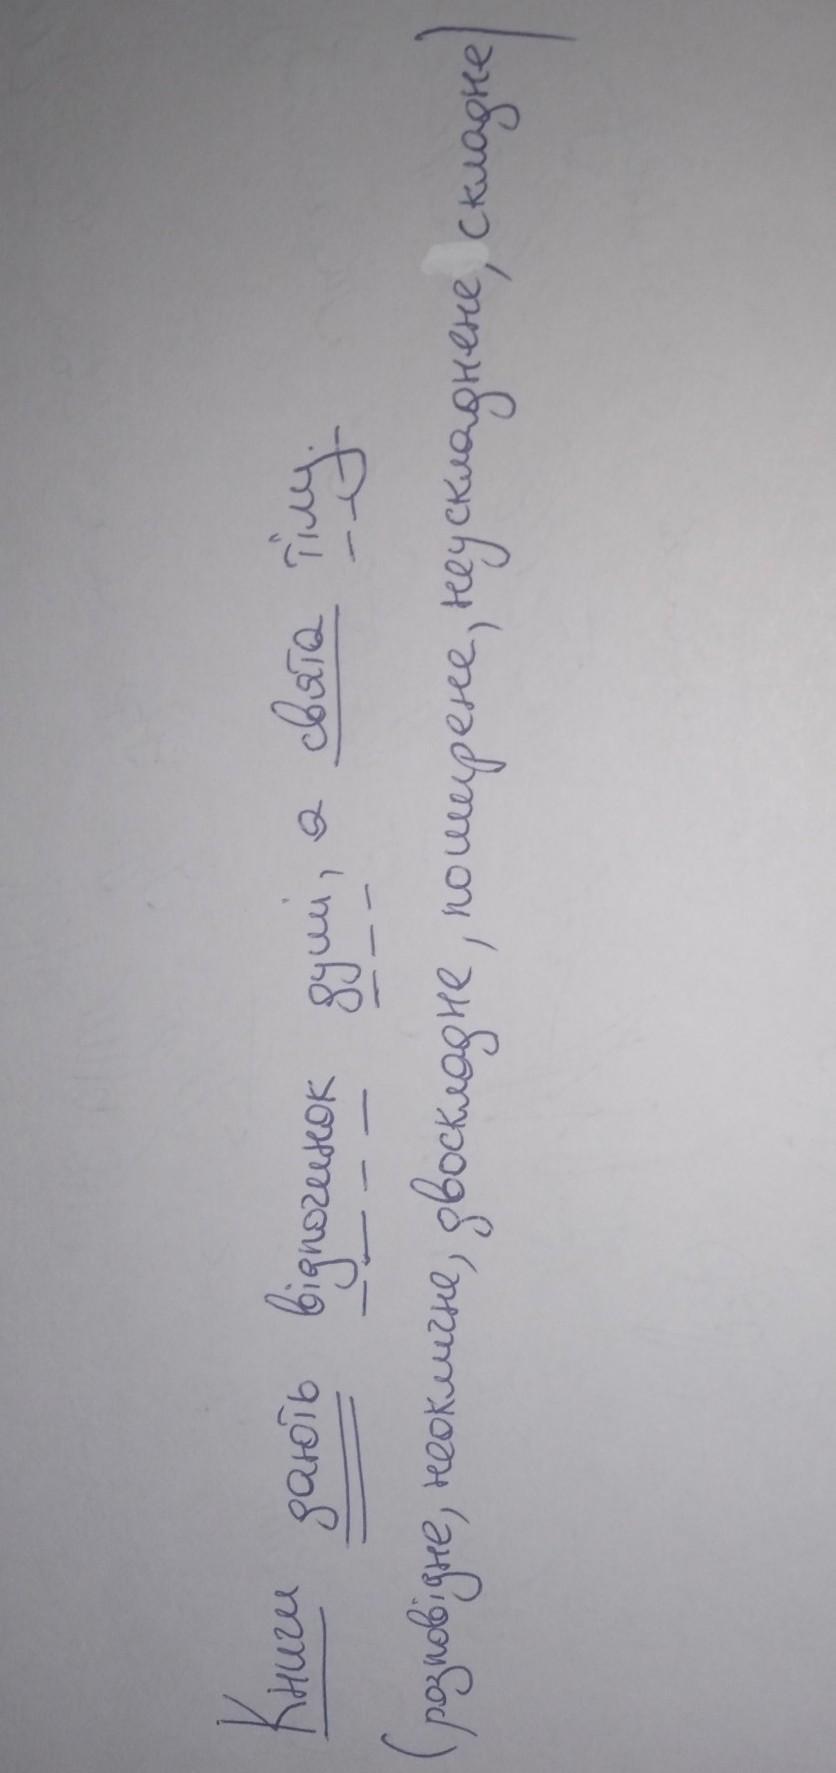 Книги дають відпочинок душі, а свята тілу.
(розповідне, неоклична, двоскладне, поширене, неускладнене, складне)